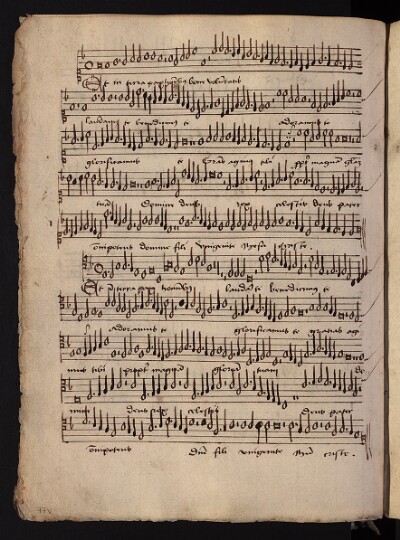 Et in terra pax hominibus bone voluntatis
laudamus te benedicimus te Adoramus te
glorificamus te Gras agimus tibi ppt magnam glaz
tuam Domine deus rex celestis deus pater
omnipotens domine fili unigenite Jhesu criste.
Et in terra pax hominibus laudamus te benedicimus te
Adoramus te glorificamus te gratias ag
mus tibi propt magnam gloriam tuam do
mine deus rex celestis deus pater
omnipotens Dne fili unigenite criste.